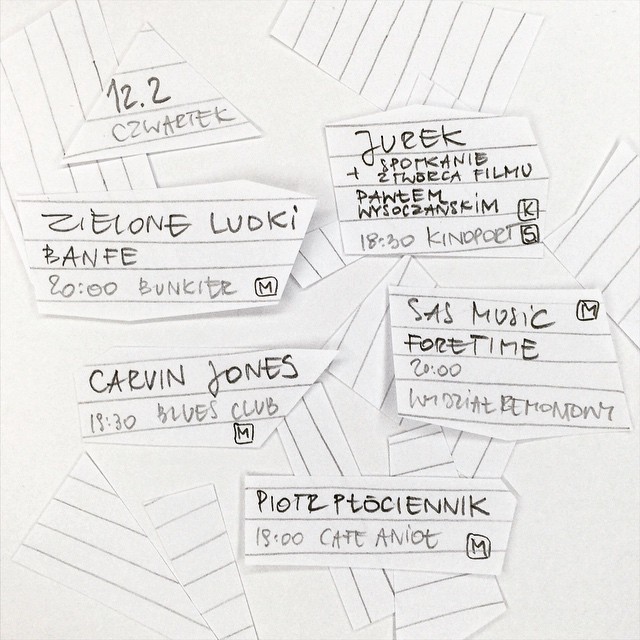 12.2
CZWARTEK
JUREK
+ SPOTKANIE
Z TWÓRCĄ FILMU
PAWŁEM
WYSOCZAŃSKIM K
18:30 KINOPORT S
ZIELONE LUDKI
BANFE
20:00 BUNKIER M
SAS MUSIC M
FORETIME
20:00
WYDZIAŁ REMONTOWY
CARVIN JONES
19:30 BLUES CLUB
M
PIOTR PŁÓCIENNIK
18:00 CAFE ANIOŁ M